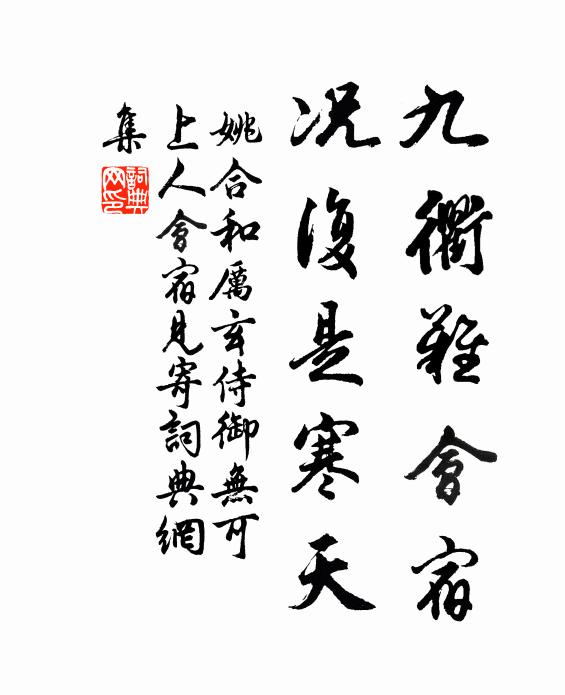 九衢難會宿
況復是寒天
姚合和厲玄侍御無可
上人會宿見寄詞典網
集
詞典
网印